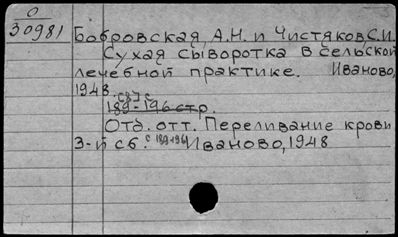 О
30981
Бобровская, А.Н. и Чистяков С.И.
Сухая сыворотка в сельской
лечебной практике. Иваново,
1948. с 87 с
189-196 стр.
Отд. отт. Переливание крови
3-й сб. с 189-196 Иваново, 1948